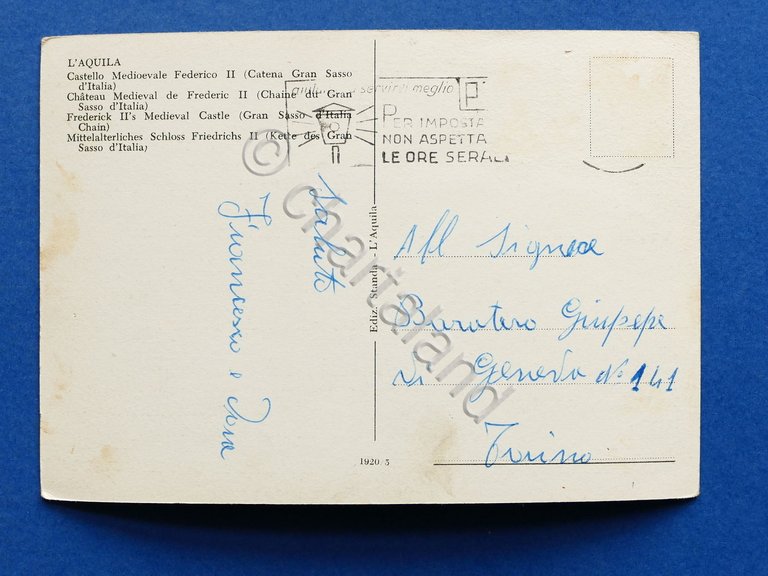 L'AQUILA
Castello Medioevale Federico II (Catena Gran Sasso
d'Italia)
Château Medieval de Frederic II (Chaine du Gran
Sasso d'Italia)
Frederick II's Medieval Castle (Gran Sasso d'Italia
Chain)
Mittelalterliches Schloss Friedrichs II (Kette des Gran
Sasso d'Italia)
servirti meglio
PER IMPOSTA
NON ASPETTA
LE ORE SERALI
Saluti
Francesco e
Ediz. Standa - L'Aquila
1920/5
All Signore
Baratero Giusepe
Genova N° 141
Torino
© chartaland